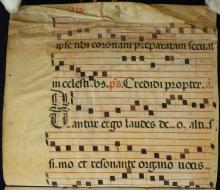 ipse tibi coronam preparatam seruat
in celestibus. ps. Credidi propter. a.
antur ergo laudes de_o. alti s
simo et resonante organo uocis